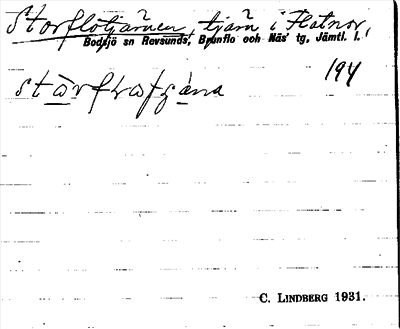 Storflötjärnen, tjärn i Flatnor,
Bodsjö sn Revsunds, Brunflo och Näs' tg, Jämtl. l.
194
C. LINDBERG 1931.